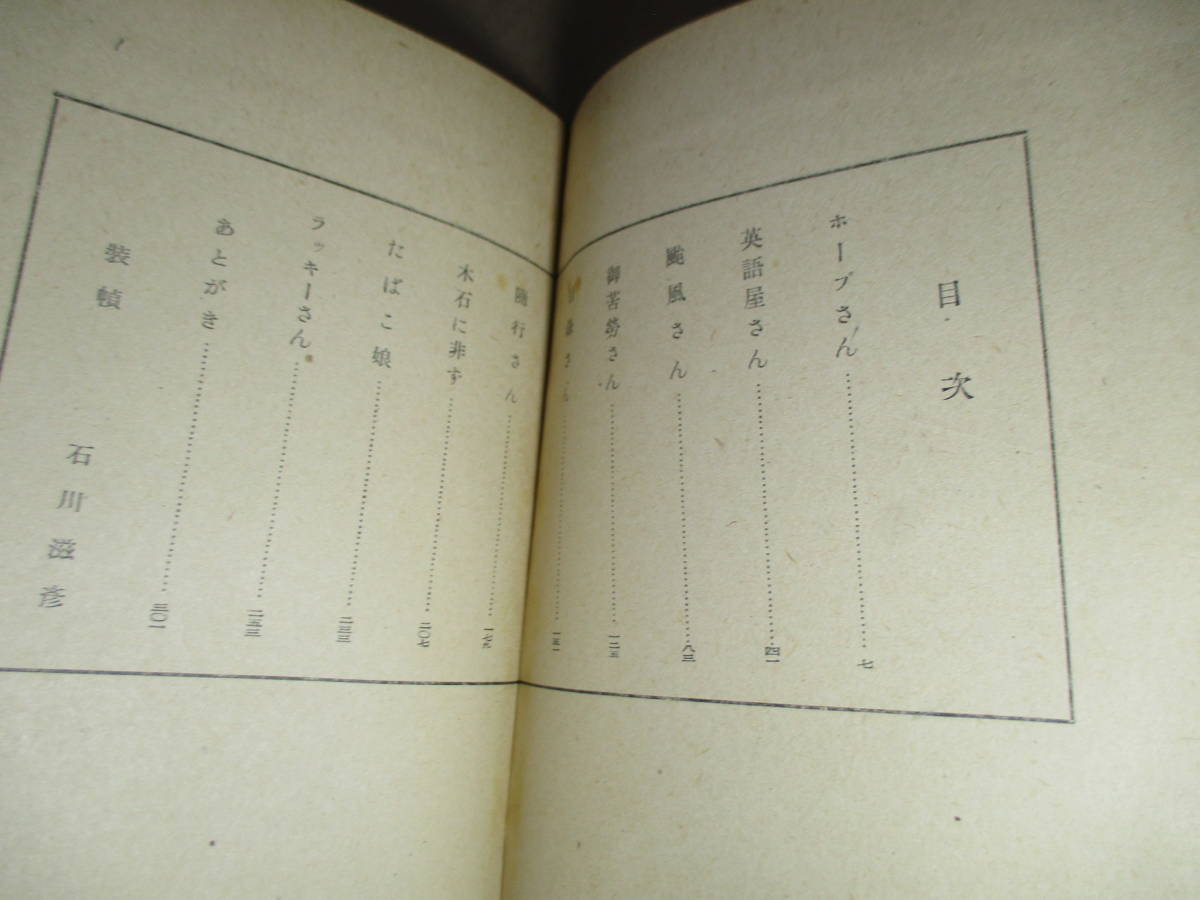 目次
ホープさん……七
英語屋さん……四一
颱風さん……八三
御苦勞さん……一二五
さん……一五一
隨行さん……一七
木石に非ず……二〇七
たばこ娘……二三三
ラッキーさん……二五三
あとがき……三〇一
裝幀 石川滋彦